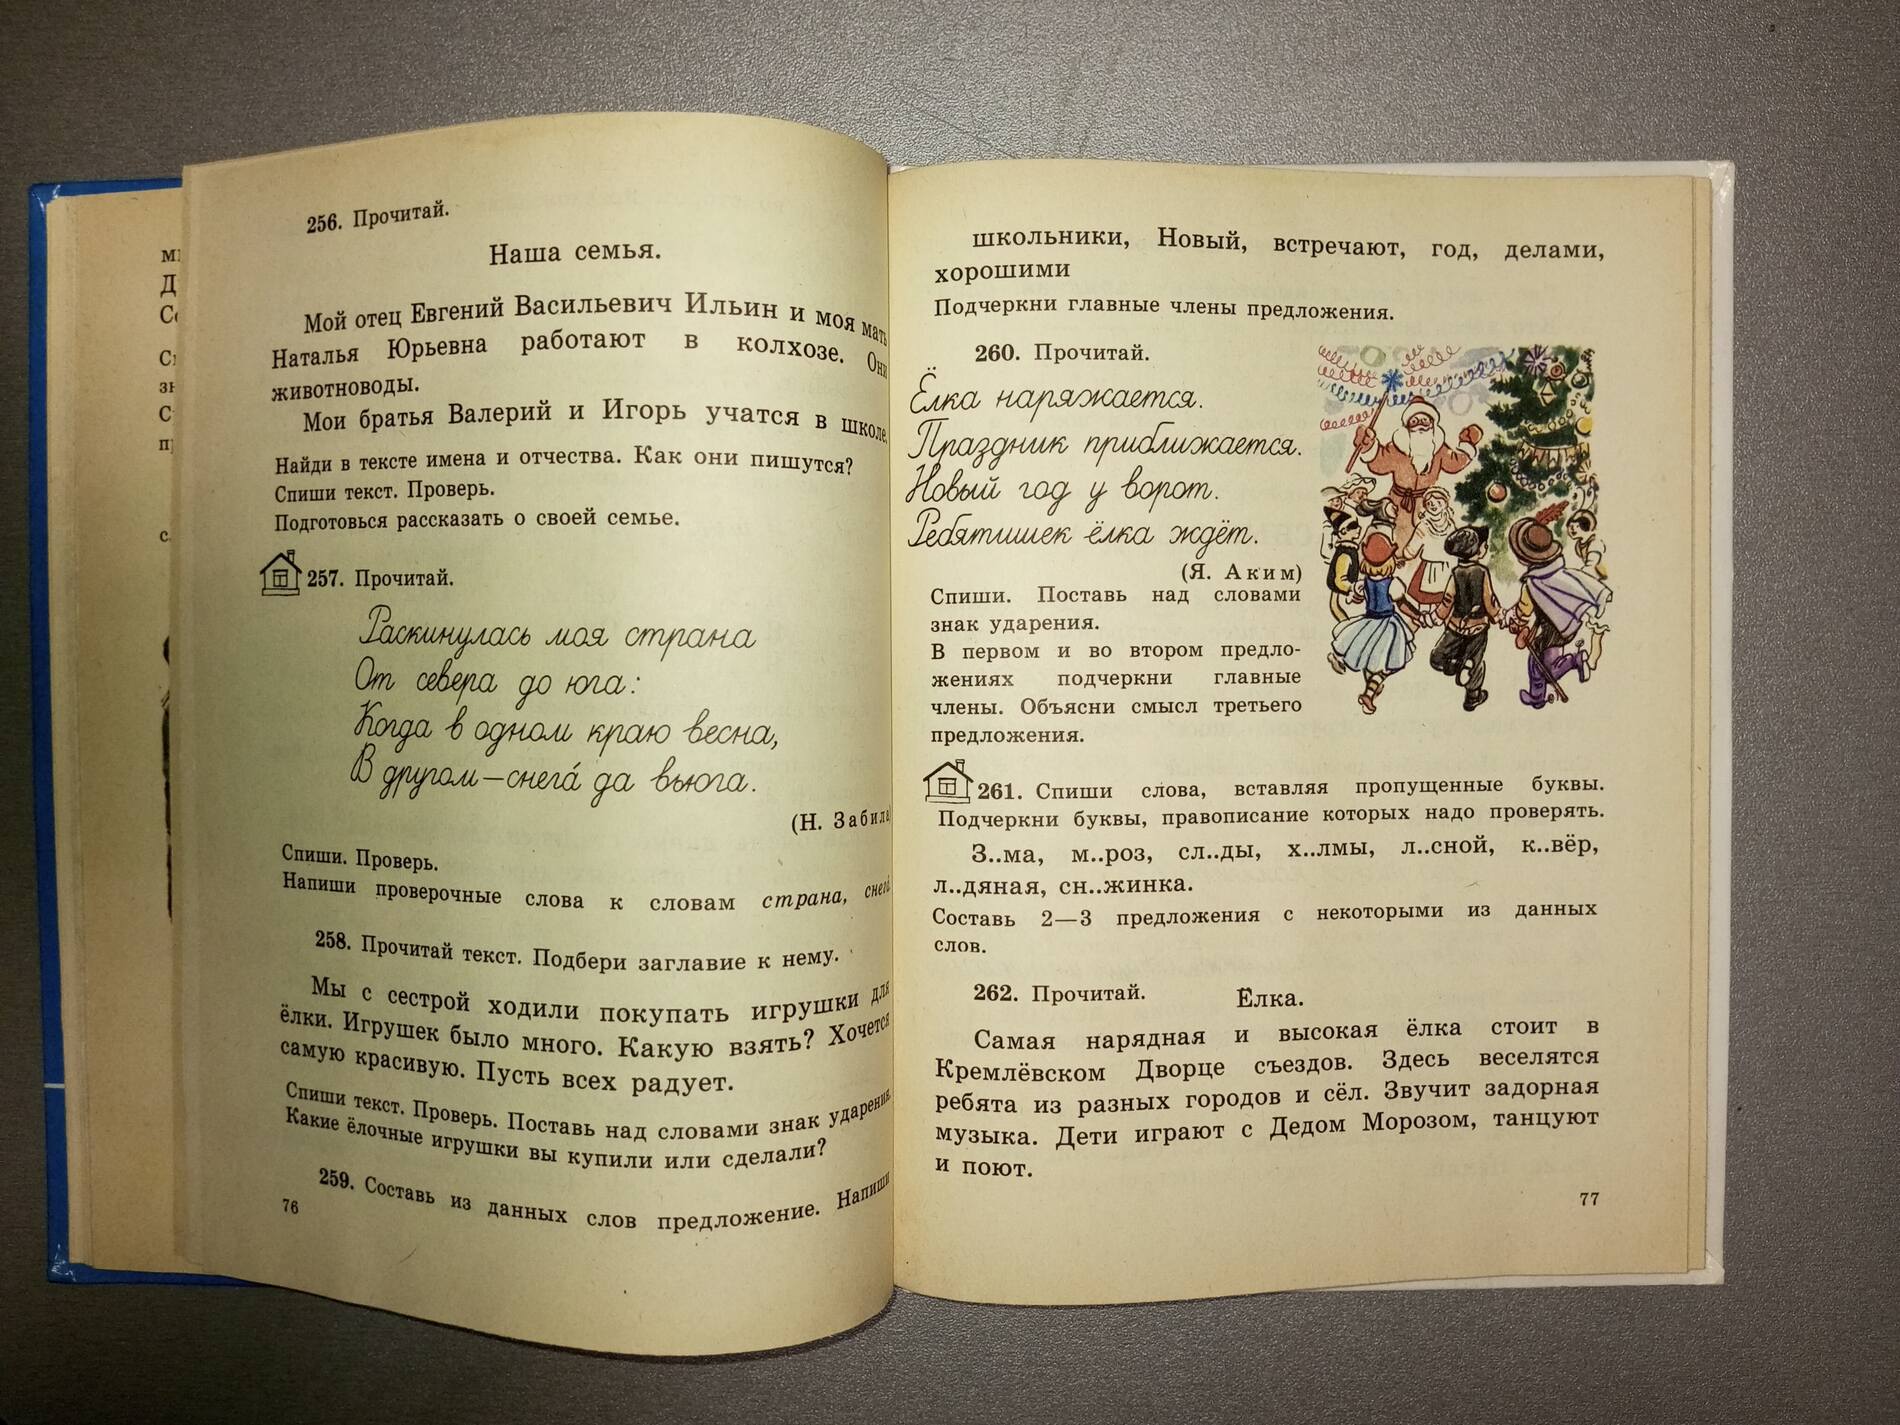 256. Прочитай.
Наша семья.
Мой отец Евгений Васильевич Ильин и моя мать
Наталья Юрьевна работают в колхозе. Они
животноводы.
Мои братья Валерий и Игорь учатся в школе.
Найди в тексте имена и отчества. Как они пишутся?
Спиши текст. Проверь.
Подготовься рассказать о своей семье.
257. Прочитай.
Раскинулась моя страна
От севера до юга:
Когда в одном краю весна,
В другом — снега́ да вьюга.
(Н. Забила
Спиши. Проверь.
Напиши проверочные слова к словам страна, снега́
258. Прочитай текст. Подбери заглавие к нему.
Мы с сестрой ходили покупать игрушки для
ёлки. Игрушек было много. Какую взять? Хочется
самую красивую. Пусть всех радует.
Спиши текст. Проверь. Поставь над словами знак ударения.
Какие ёлочные игрушки вы купили или сделали?
259. Составь из данных слов предложение. Напиши
76
школьники, Новый, встречают, год, делами,
хорошими
Подчеркни главные члены предложения.
260. Прочитай.
Ёлка наряжается.
Праздник приближается.
Новый год у ворот.
Ребятишек ёлка ждёт.
(Я. Аким)
Спиши. Поставь над словами
знак ударения.
В первом и во втором предло-
жениях подчеркни главные
члены. Объясни смысл третьего
предложения.
261. Спиши слова, вставляя пропущенные буквы.
Подчеркни буквы, правописание которых надо проверять.
З..ма, м..роз, сл..ды, х..лмы, л..сной, к..вёр,
л..дяная, сн..жинка.
Составь 2—3 предложения с некоторыми из данных
слов.
262. Прочитай.
Елка.
Самая нарядная и высокая ёлка стоит в
Кремлёвском Дворце съездов. Здесь веселятся
ребята из разных городов и сёл. Звучит задорная
музыка. Дети играют с Дедом Морозом, танцуют
и поют.
77